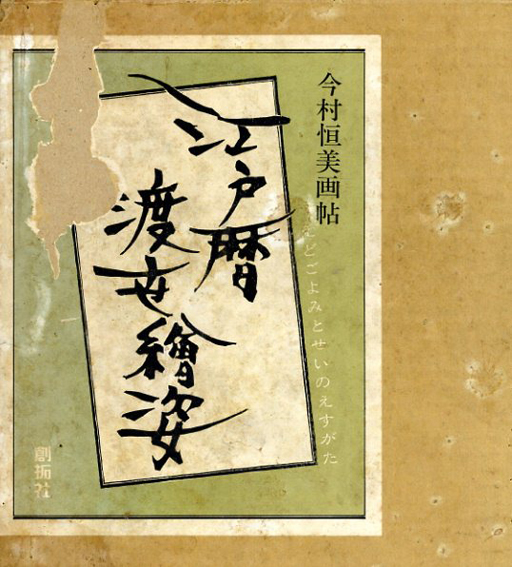 今村恒美画帖
江戸暦
渡世繪姿
えどごよみとせいのえすがた
創拓社